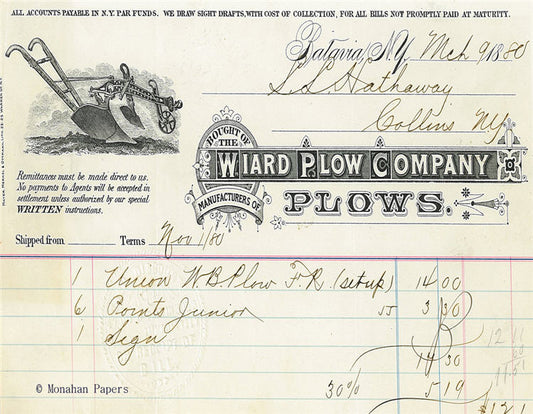 ALL ACCOUNTS PAYABLE IN N.Y. PAR FUNDS. WE DRAW SIGHT DRAFTS, WITH COST OF COLLECTION, FOR ALL BILLS NOT PROMPTLY PAID AT MATURITY.
Batavia, N.Y. Mch 9/1880
S.S. Hathaway
Collins NY
BOUGHT OF
THE
WIARD PLOW COMPANY
MANUFACTURERS OF
PLOWS.
Remittances must be made direct to us.
No payments to Agents will be accepted in
settlement unless authorized by our special
WRITTEN instructions.
Shipped from Terms Nov 1/80
1 Union W.B. Plow F.R. (set up) 14 00
6 Points Junior 55 3 30
1 Sign
30% 5 19
© Monahan Papers